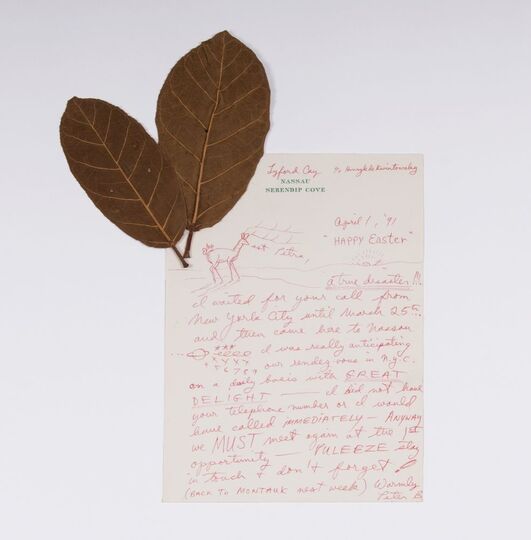 Lyford Cay
NASSAU
SERENDIP COVE
April 1, '91
"HAPPY Easter"
a true disaster!!!
I waited for your call from
New York City until March 25th.
and then came here to Nassau
I was really anticipating
our rendez vous in N.Y.C.
on a daily basis with GREAT
DELIGHT — I did not have
your telephone number or I would
have called IMMEDIATELY — ANYWAY
we MUST meet again at the 1st
opportunity — PULEEZE stay
in touch & don't forget!
(BACK TO MONTAUK next week) Warmly
Peter B